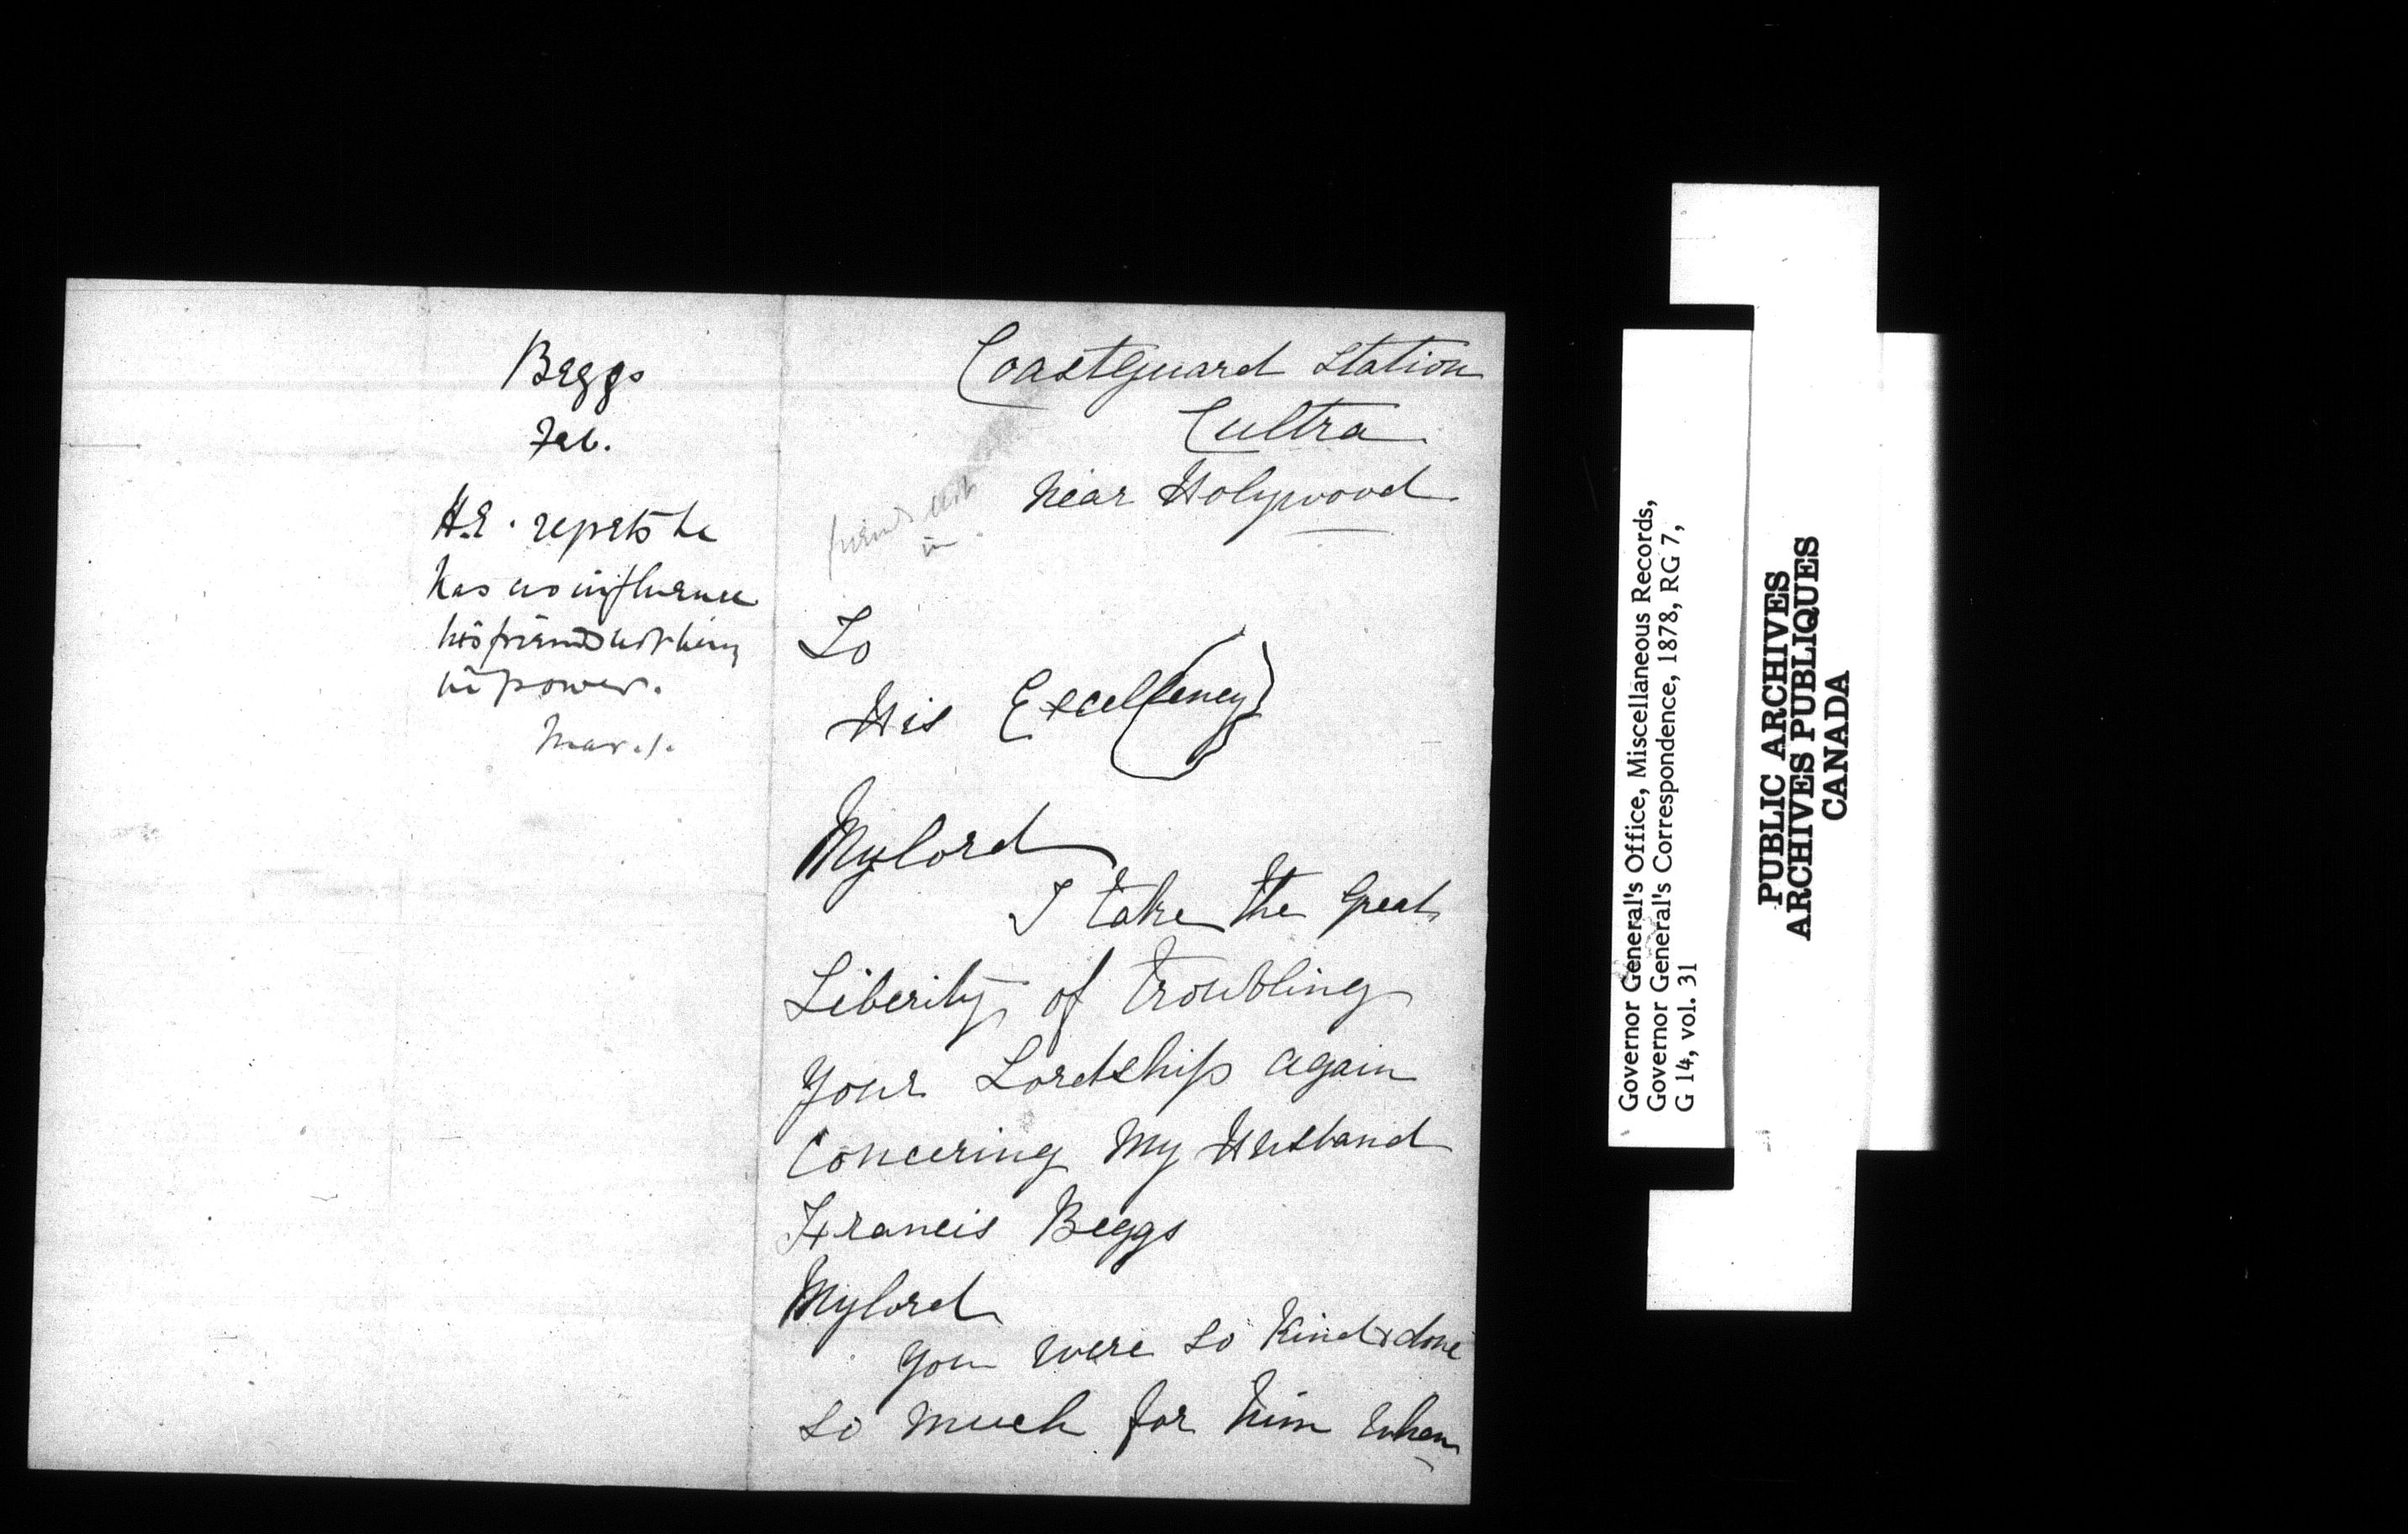 Beggs
Feb.
H.E. regrets he
has no influence
his friends not being
in power.
Mar. 1.
Coastguard Station
Cultra
Near Holywood
friends not
in
To
His Excellency
Mylord
I take the Great
Liberity of trowbling
Your Lordship again
Concering My Husband
Francis Beggs
Mylord
You were so Kind & done
so much for him when
Governor General's Office, Miscellaneous Records,
Governor General's Correspondence, 1878, RG 7,
G 14, vol. 31
PUBLIC ARCHIVES
ARCHIVES PUBLIQUES
CANADA